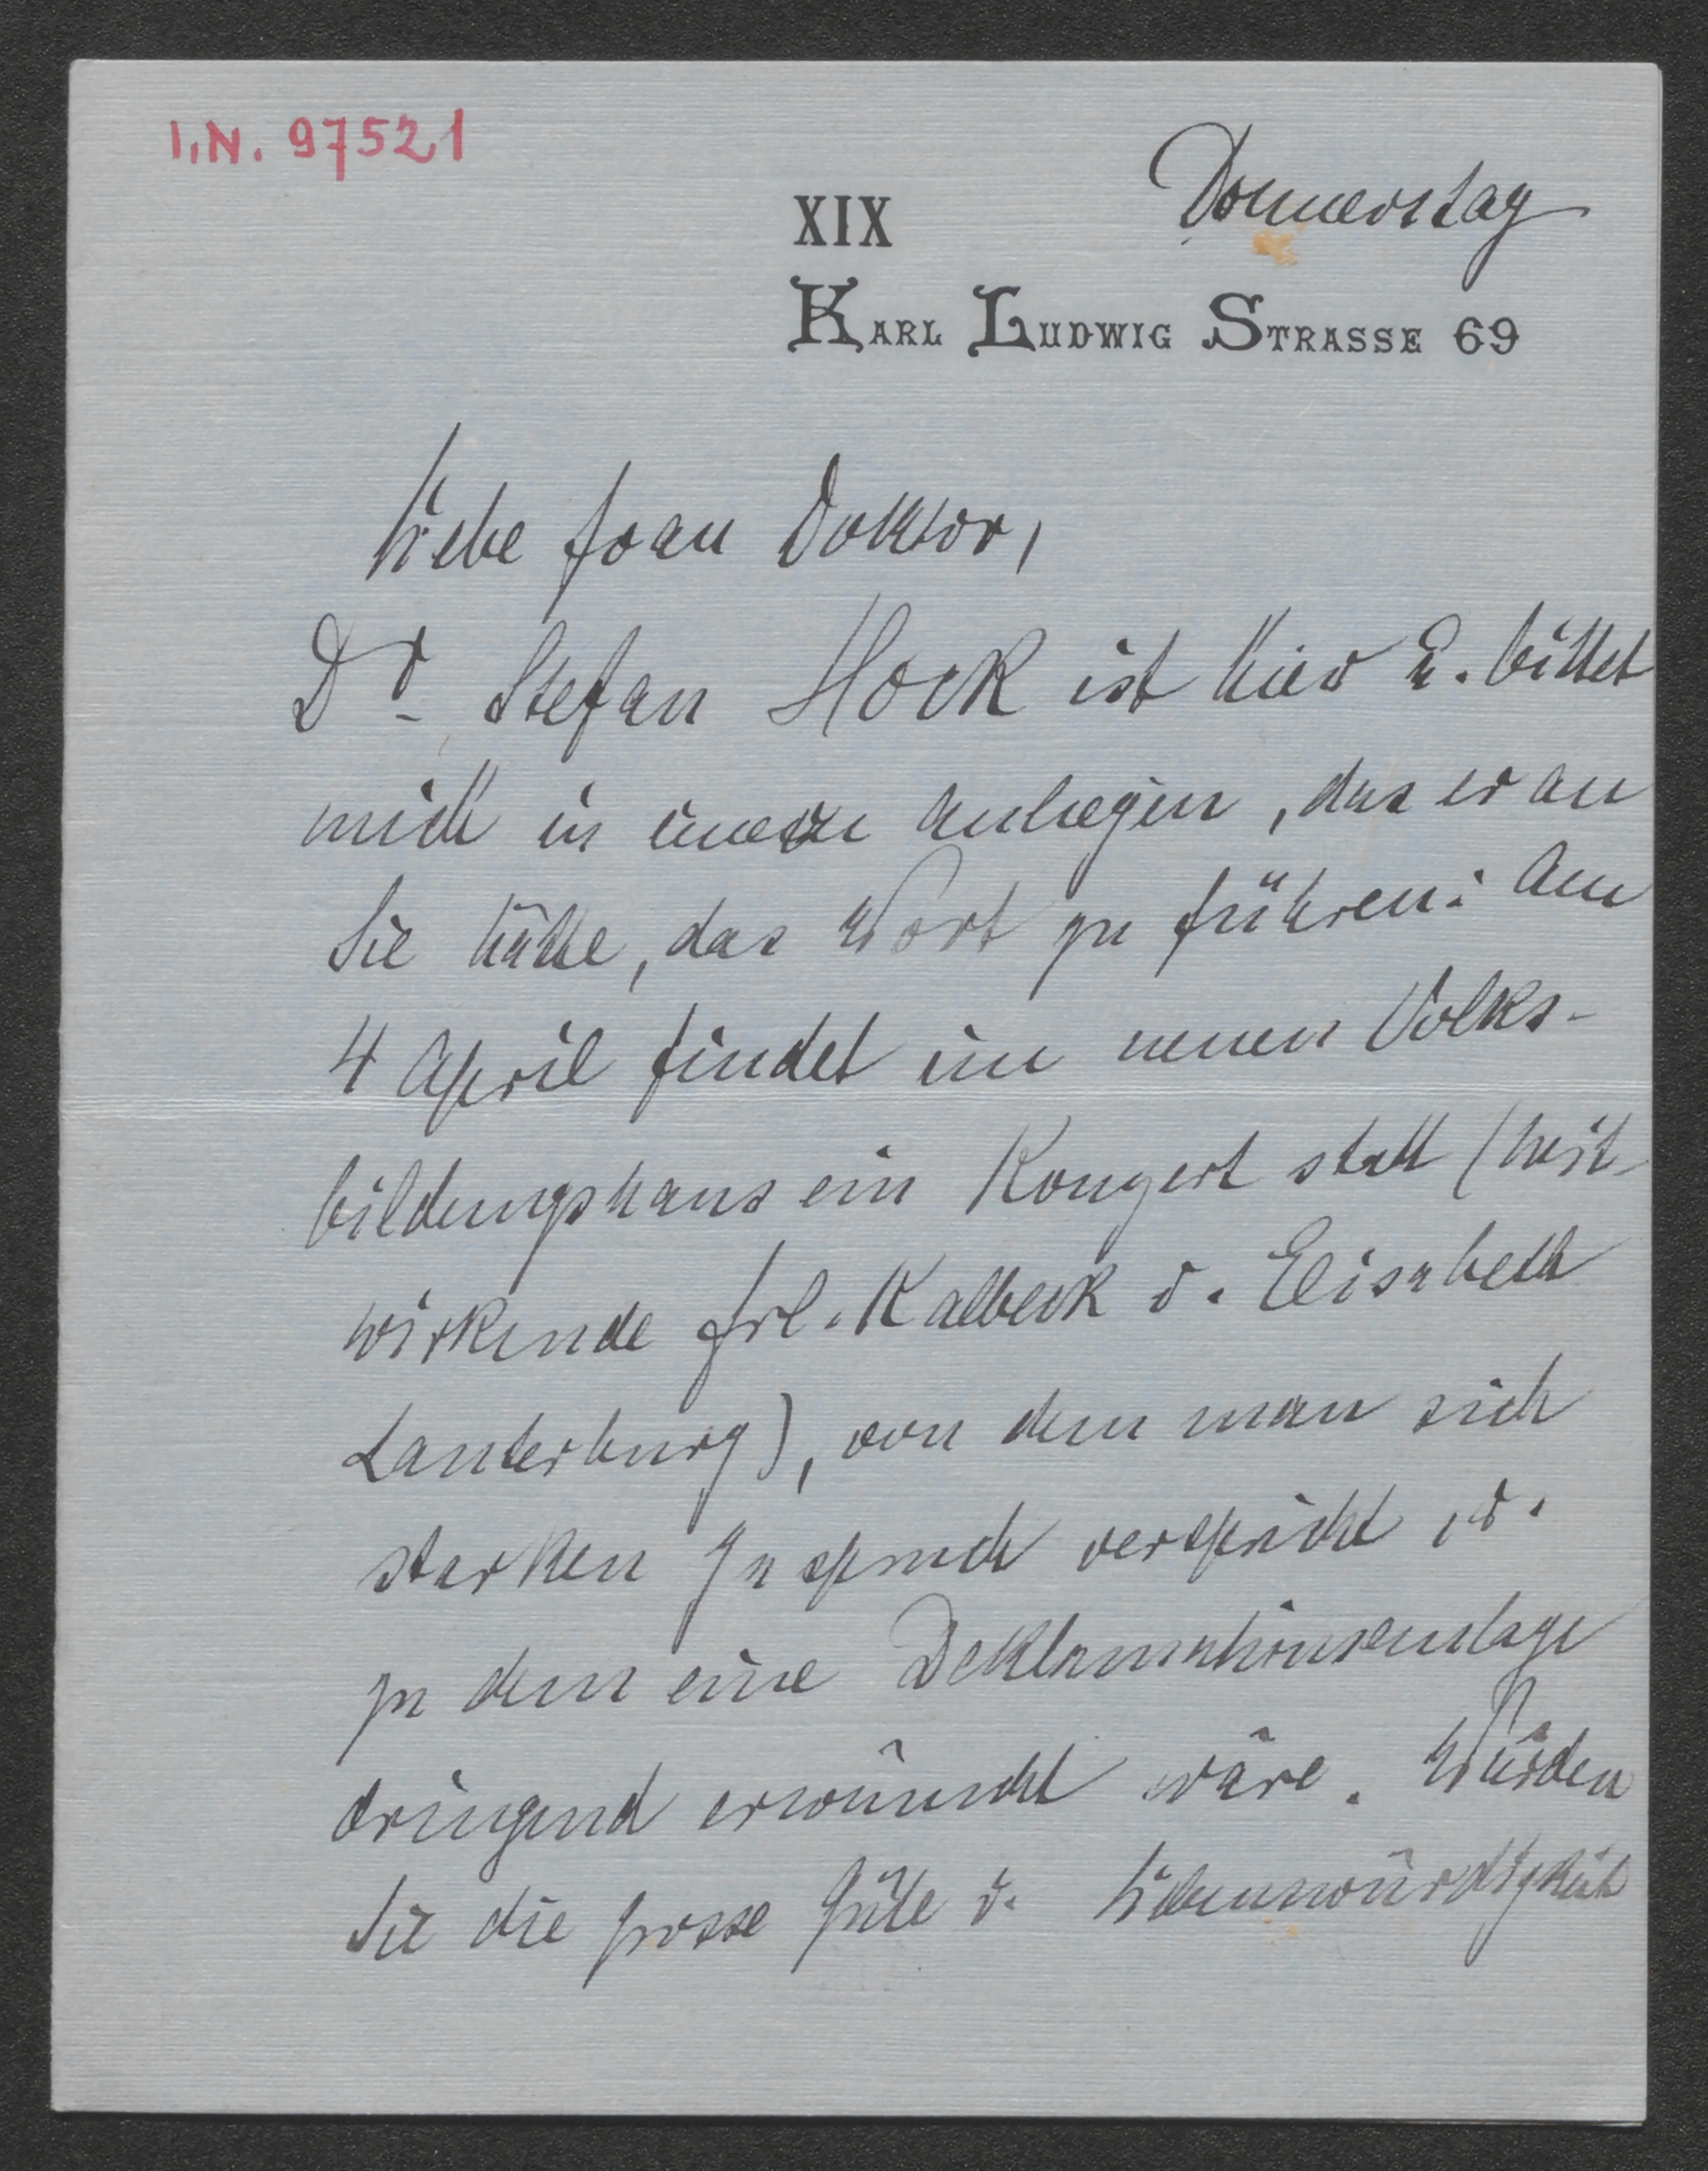 I.N. 97521
Donnerstag
XIX
KARL LUDWIG STRASSE 69
Liebe Frau Doktor,
Dr. Stefan Hock ist hier u. bittet
mich in einem Anliegen, das er an
Sie hätte, das Wort zu führen: Am
4 April findet im neuen Volks-
bildungshaus ein Konzert statt (Mit-
wirkende Frl. Kalbeck u. Elisabeth
Lauterburg), von dem man sich
starken Zuspruch verspricht u.
zu dem eine Deklamationseinlage
dringend erwünscht wäre. Würden
Sie die grosse Güte u. Liebenswürdigkeit